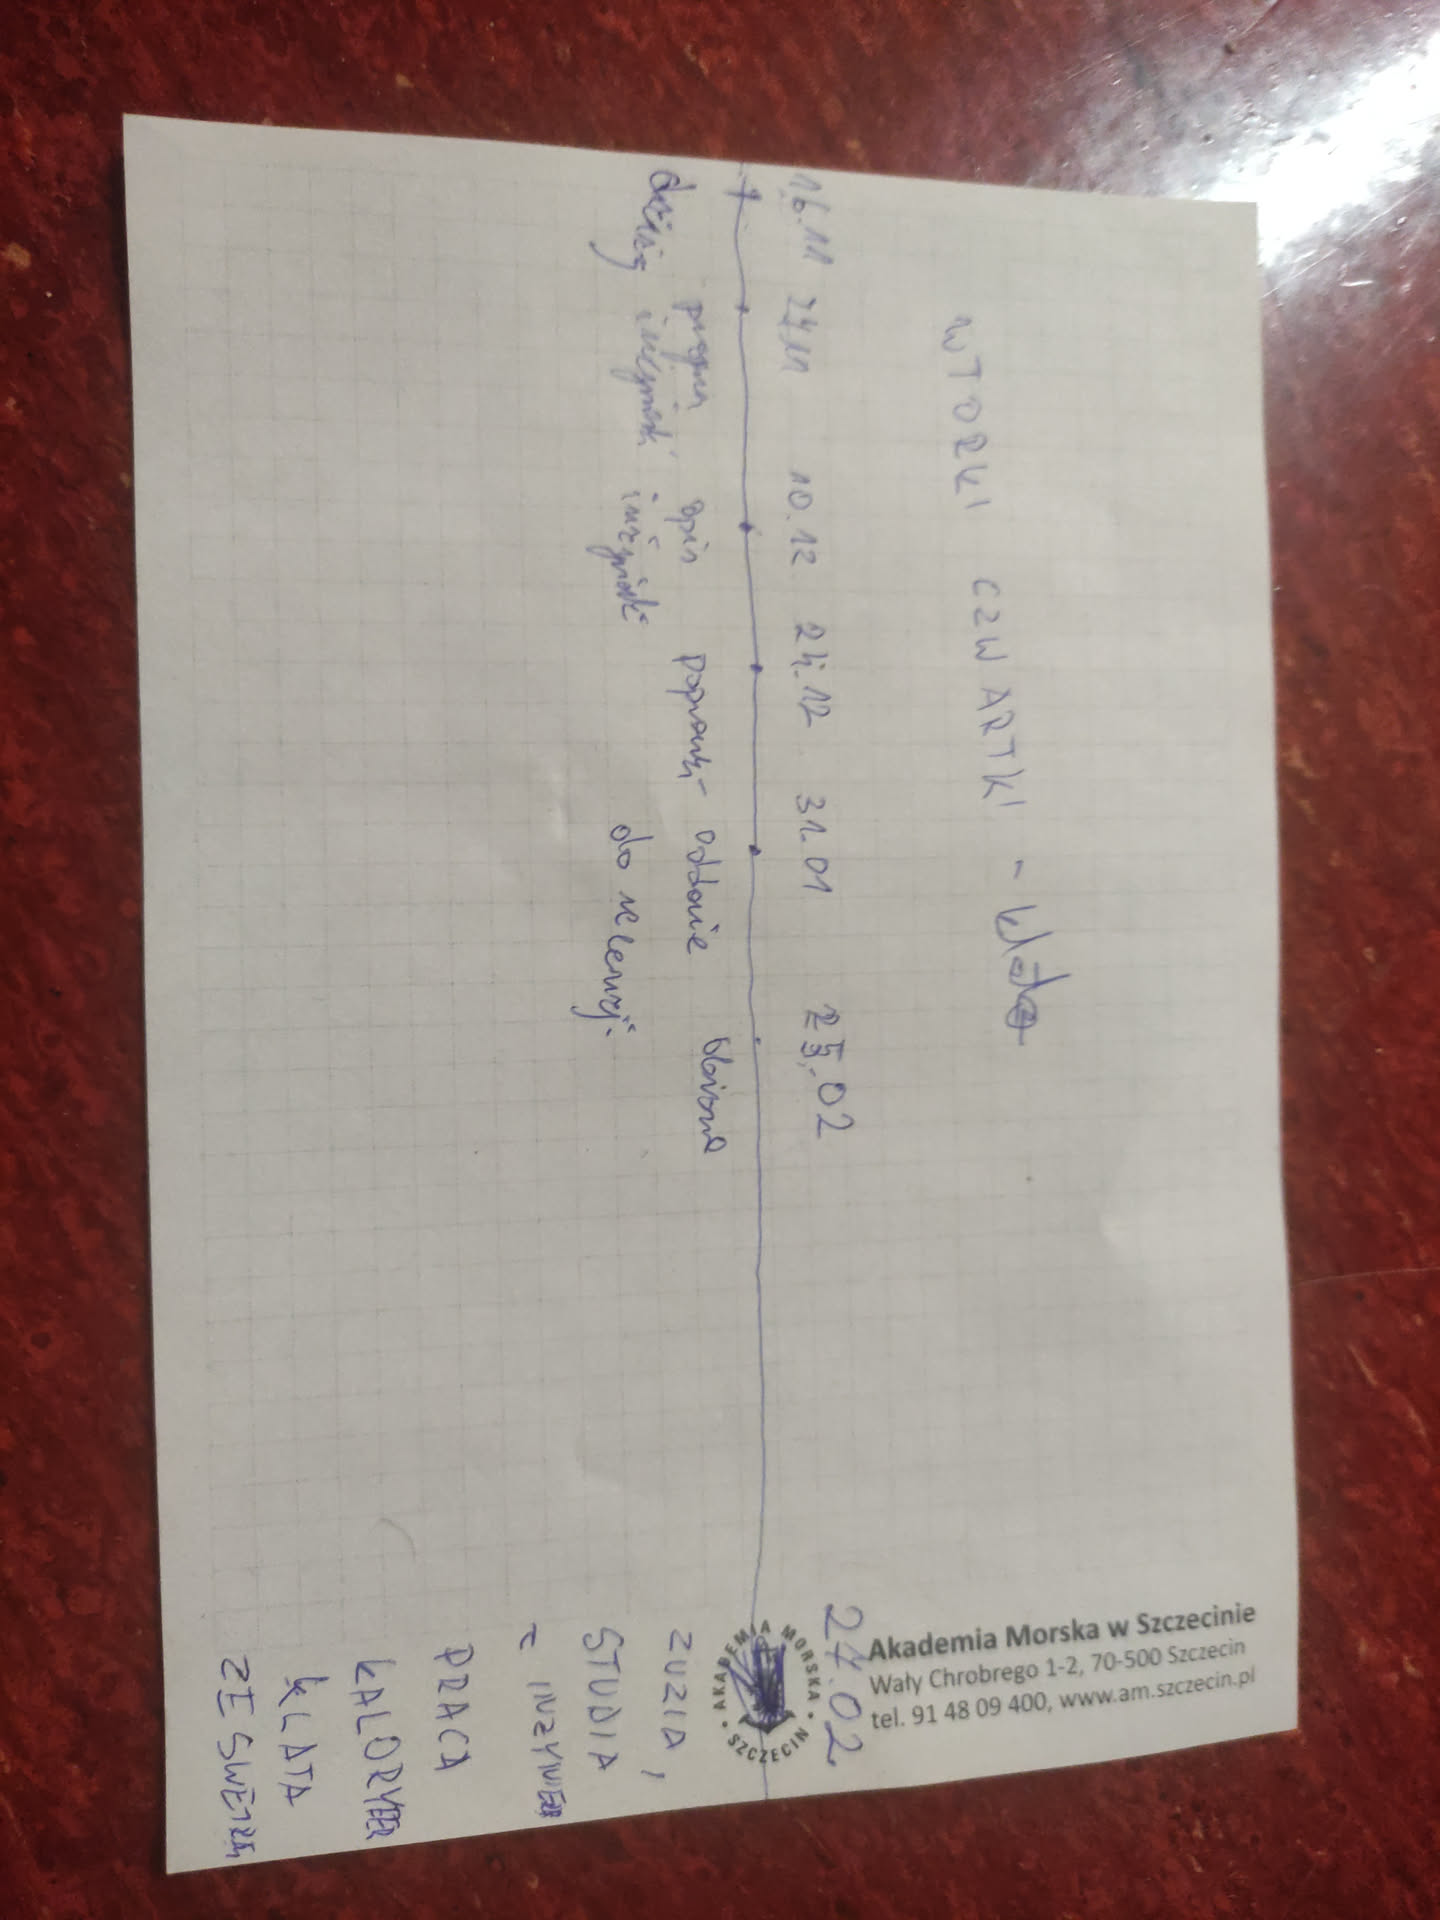 WTORKI CZWARTKI -
16.11 24.11 10.12 24.12 31.01 25.02 24.02
dzisiaj program spis poprawki oddanie obrona
inżynierki inżynierki do recenzji
Akademia Morska w Szczecinie
Wały Chrobrego 1-2, 70-500 Szczecin
tel. 91 48 09 400, www.am.szczecin.pl
AKADEMIA MORSKA • SZCZECIN •
ZUZIA,
STUDIA
PRACA
KALORYFER
KLATA
ZE